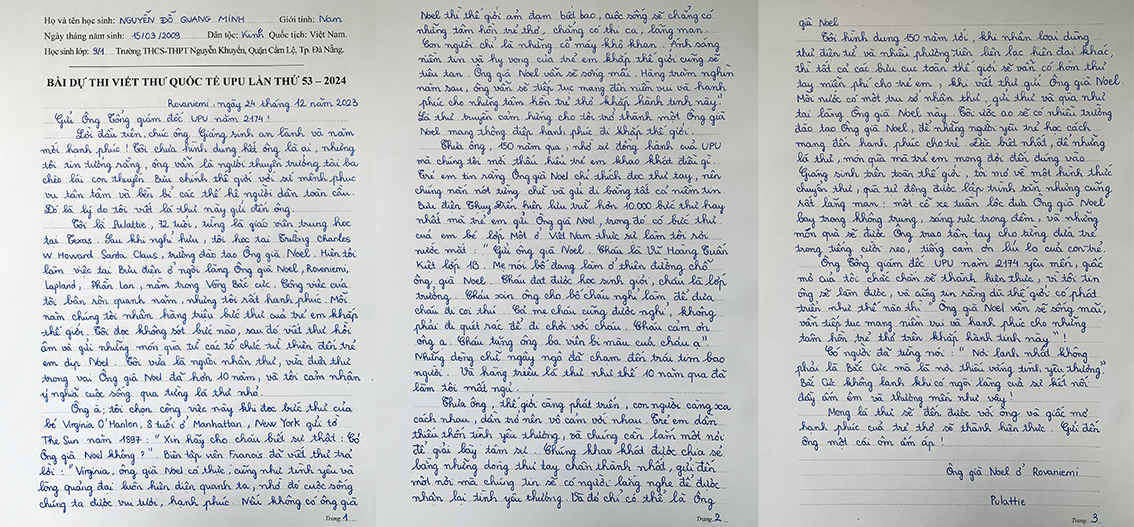 Họ và tên học sinh: NGUYỄN ĐỖ QUANG MINH Giới tính: Nam
Ngày tháng năm sinh: 15/03/2009 Dân tộc: Kinh Quốc tịch: Việt Nam.
Học sinh lớp: 9/1 Trường THCS-THPT Nguyễn Khuyến, Quận Cẩm Lệ, Tp. Đà Nẵng.
BÀI DỰ THI VIẾT THƯ QUỐC TẾ UPU LẦN THỨ 53 – 2024
Rovaniemi, ngày 24 tháng 12 năm 2023
Gửi Ông Tổng giám đốc UPU năm 2174!
Lời đầu tiên, chúc ông Giáng sinh an lành và năm
mới hạnh phúc! Tôi chưa hình dung hết ông là ai, nhưng
tôi tin tưởng rằng, ông vẫn là người thuyền trưởng tài ba
chèo lái con thuyền Bưu chính thế giới với sứ mệnh phục
vụ tận tâm và bền bỉ các thế hệ người dân toàn cầu.
Đó là lý do tôi viết lá thư này gửi đến ông.
Tôi là Pulattie, 72 tuổi, từng là giáo viên trung học
tại Texas. Sau khi nghỉ hưu, tôi học tại Trường Charles
W. Howard Santa Claus, trường đào tạo Ông già Noel. Hiện tôi
làm việc tại Bưu điện ở ngôi làng Ông già Noel, Rovaniemi,
Lapland, Phần Lan, nằm trong Vòng Bắc cực. Công việc của
tôi bận rộn quanh năm, nhưng tôi rất hạnh phúc. Mỗi
năm chúng tôi nhận hàng triệu bức thư của trẻ em khắp
thế giới. Tôi đọc không sót bức nào, sau đó viết thư hồi
âm và gửi những món quà từ các tổ chức từ thiện đến trẻ
em dịp Noel. Tôi vừa là người nhận thư, vừa đưa thư
trong vai Ông già Noel đã hơn 10 năm, và tôi cảm nhận
ý nghĩa cuộc sống qua từng lá thư nhỏ.
Ông à, tôi chọn công việc này khi đọc bức thư của
bé Virginia O'Hanlon, 8 tuổi ở Manhattan, New York gửi tờ
The Sun năm 1897: "Xin hãy cho cháu biết sự thật: Có
Ông già Noel không?". Biên tập viên Francis đã viết thư trả
lời: "Virginia, ông già Noel có thực, cũng như tình yêu và
lòng quảng đại luôn hiện diện quanh ta, nhờ đó cuộc sống
chúng ta được vui tươi, hạnh phúc. Nếu không có ông già
Trang 1
Noel thì thế giới ảm đạm biết bao, cuộc sống sẽ chẳng có
những tâm hồn trẻ thơ, chẳng có thi ca, lãng mạn.
Con người chỉ là những cỗ máy khô khan. Ánh sáng
niềm tin và hy vọng của trẻ em khắp thế giới cũng sẽ
tiêu tan. Ông già Noel vẫn sẽ sống mãi. Hàng trăm nghìn
năm sau, ông vẫn sẽ tiếp tục mang đến niềm vui và hạnh
phúc cho những tâm hồn trẻ thơ khắp hành tinh này".
Lá thư truyền cảm hứng cho tôi trở thành một Ông già
Noel mang thông điệp hạnh phúc đi khắp thế giới.
Thưa ông, 150 năm qua, nhờ sự đồng hành của UPU
mà chúng tôi mới thấu hiểu trẻ em khao khát điều gì.
Trẻ em tin rằng Ông già Noel chỉ thích đọc thư tay, nên
chúng nắn nót từng chữ và gửi đi bằng tất cả niềm tin.
Bưu điện Thụy Điển hiện lưu trữ hơn 10.000 bức thư hay
nhất mà trẻ em gửi Ông già Noel, trong đó có bức thư
của em bé lớp Một ở Việt Nam thực sự làm tôi rơi
nước mắt: "Gửi ông già Noel. Cháu là Vũ Hoàng Tuấn
Kiệt lớp 1B. Mẹ nói bố đang làm ở thiên đường chỗ
ông già Noel. Cháu đạt được học sinh giỏi, cháu là lớp
trưởng. Cháu xin ông cho bố cháu nghỉ làm, để đưa
cháu đi coi thú. Cả mẹ cháu cũng được nghỉ, không
phải đi quét rác để đi chơi với cháu. Cháu cảm ơn
ông ạ. Cháu tặng ông ba viên bi màu của cháu ạ".
Những dòng chữ ngây ngô đã chạm đến trái tim bao
người. Và hàng triệu lá thư như thế 10 năm qua đã
làm tôi mất ngủ.
Thưa ông, thế giới càng phát triển, con người càng xa
cách nhau, dần trở nên vô cảm với nhau. Trẻ em dần
thiếu thốn tình yêu thương, và chúng cần lắm một nơi
để giãi bày tâm sự. Chúng khao khát được chia sẻ
bằng những dòng thư tay chân thành nhất, gửi đến
một nơi mà chúng tin sẽ có người lắng nghe để được
nhận lại tình yêu thương. Và đó chỉ có thể là Ông
Trang 2
già Noel
Tôi hình dung 150 năm tới, khi nhân loại dùng
thư điện tử và nhiều phương tiện liên lạc hiện đại khác,
thì tất cả các bưu cục toàn thế giới sẽ vẫn có hòm thư
tay miễn phí cho trẻ em, khi viết thư gửi Ông già Noel.
Mỗi nước có một trụ sở nhận thư, gửi thư và quà như
tại làng Ông già Noel này. Tôi ước ao sẽ có nhiều trường
đào tạo Ông già Noel, để những người yêu trẻ học cách
mang đến hạnh phúc cho trẻ. Đặc biệt nhất, để những
lá thư, món quà mà trẻ em mong đợi đến đúng vào
Giáng sinh trên toàn thế giới, tôi mơ về một hình thức
chuyển thư, quà tự động được lập trình sẵn nhưng cũng
rất lãng mạn: một cỗ xe tuần lộc đưa Ông già Noel
bay trong không trung, sáng rực trong đêm, và những
món quà sẽ được Ông trao tận tay cho từng đứa trẻ
trong tiếng cười reo, tiếng cảm ơn líu lo của con trẻ.
Ông Tổng giám đốc UPU năm 2174 yêu mến, giấc
mơ của tôi chắc chắn sẽ thành hiện thực, vì tôi tin
ông sẽ làm được, và cũng tin rằng dù thế giới có phát
triển như thế nào thì "Ông già Noel vẫn sẽ sống mãi,
vẫn tiếp tục mang niềm vui và hạnh phúc cho những
tâm hồn trẻ thơ trên khắp hành tinh này"!
Có người đã từng nói: "Nơi lạnh nhất không
phải là Bắc Cực mà là nơi thiếu vắng tình yêu thương".
Bắc Cực không lạnh khi có ngôi làng của sự kết nối
đầy ấm êm và thương mến như vậy!
Mong lá thư sẽ đến được với ông và giấc mơ
hạnh phúc của trẻ thơ sẽ thành hiện thực. Gửi đến
ông một cái ôm ấm áp!
Ông già Noel ở Rovaniemi
Pulattie
Trang 3